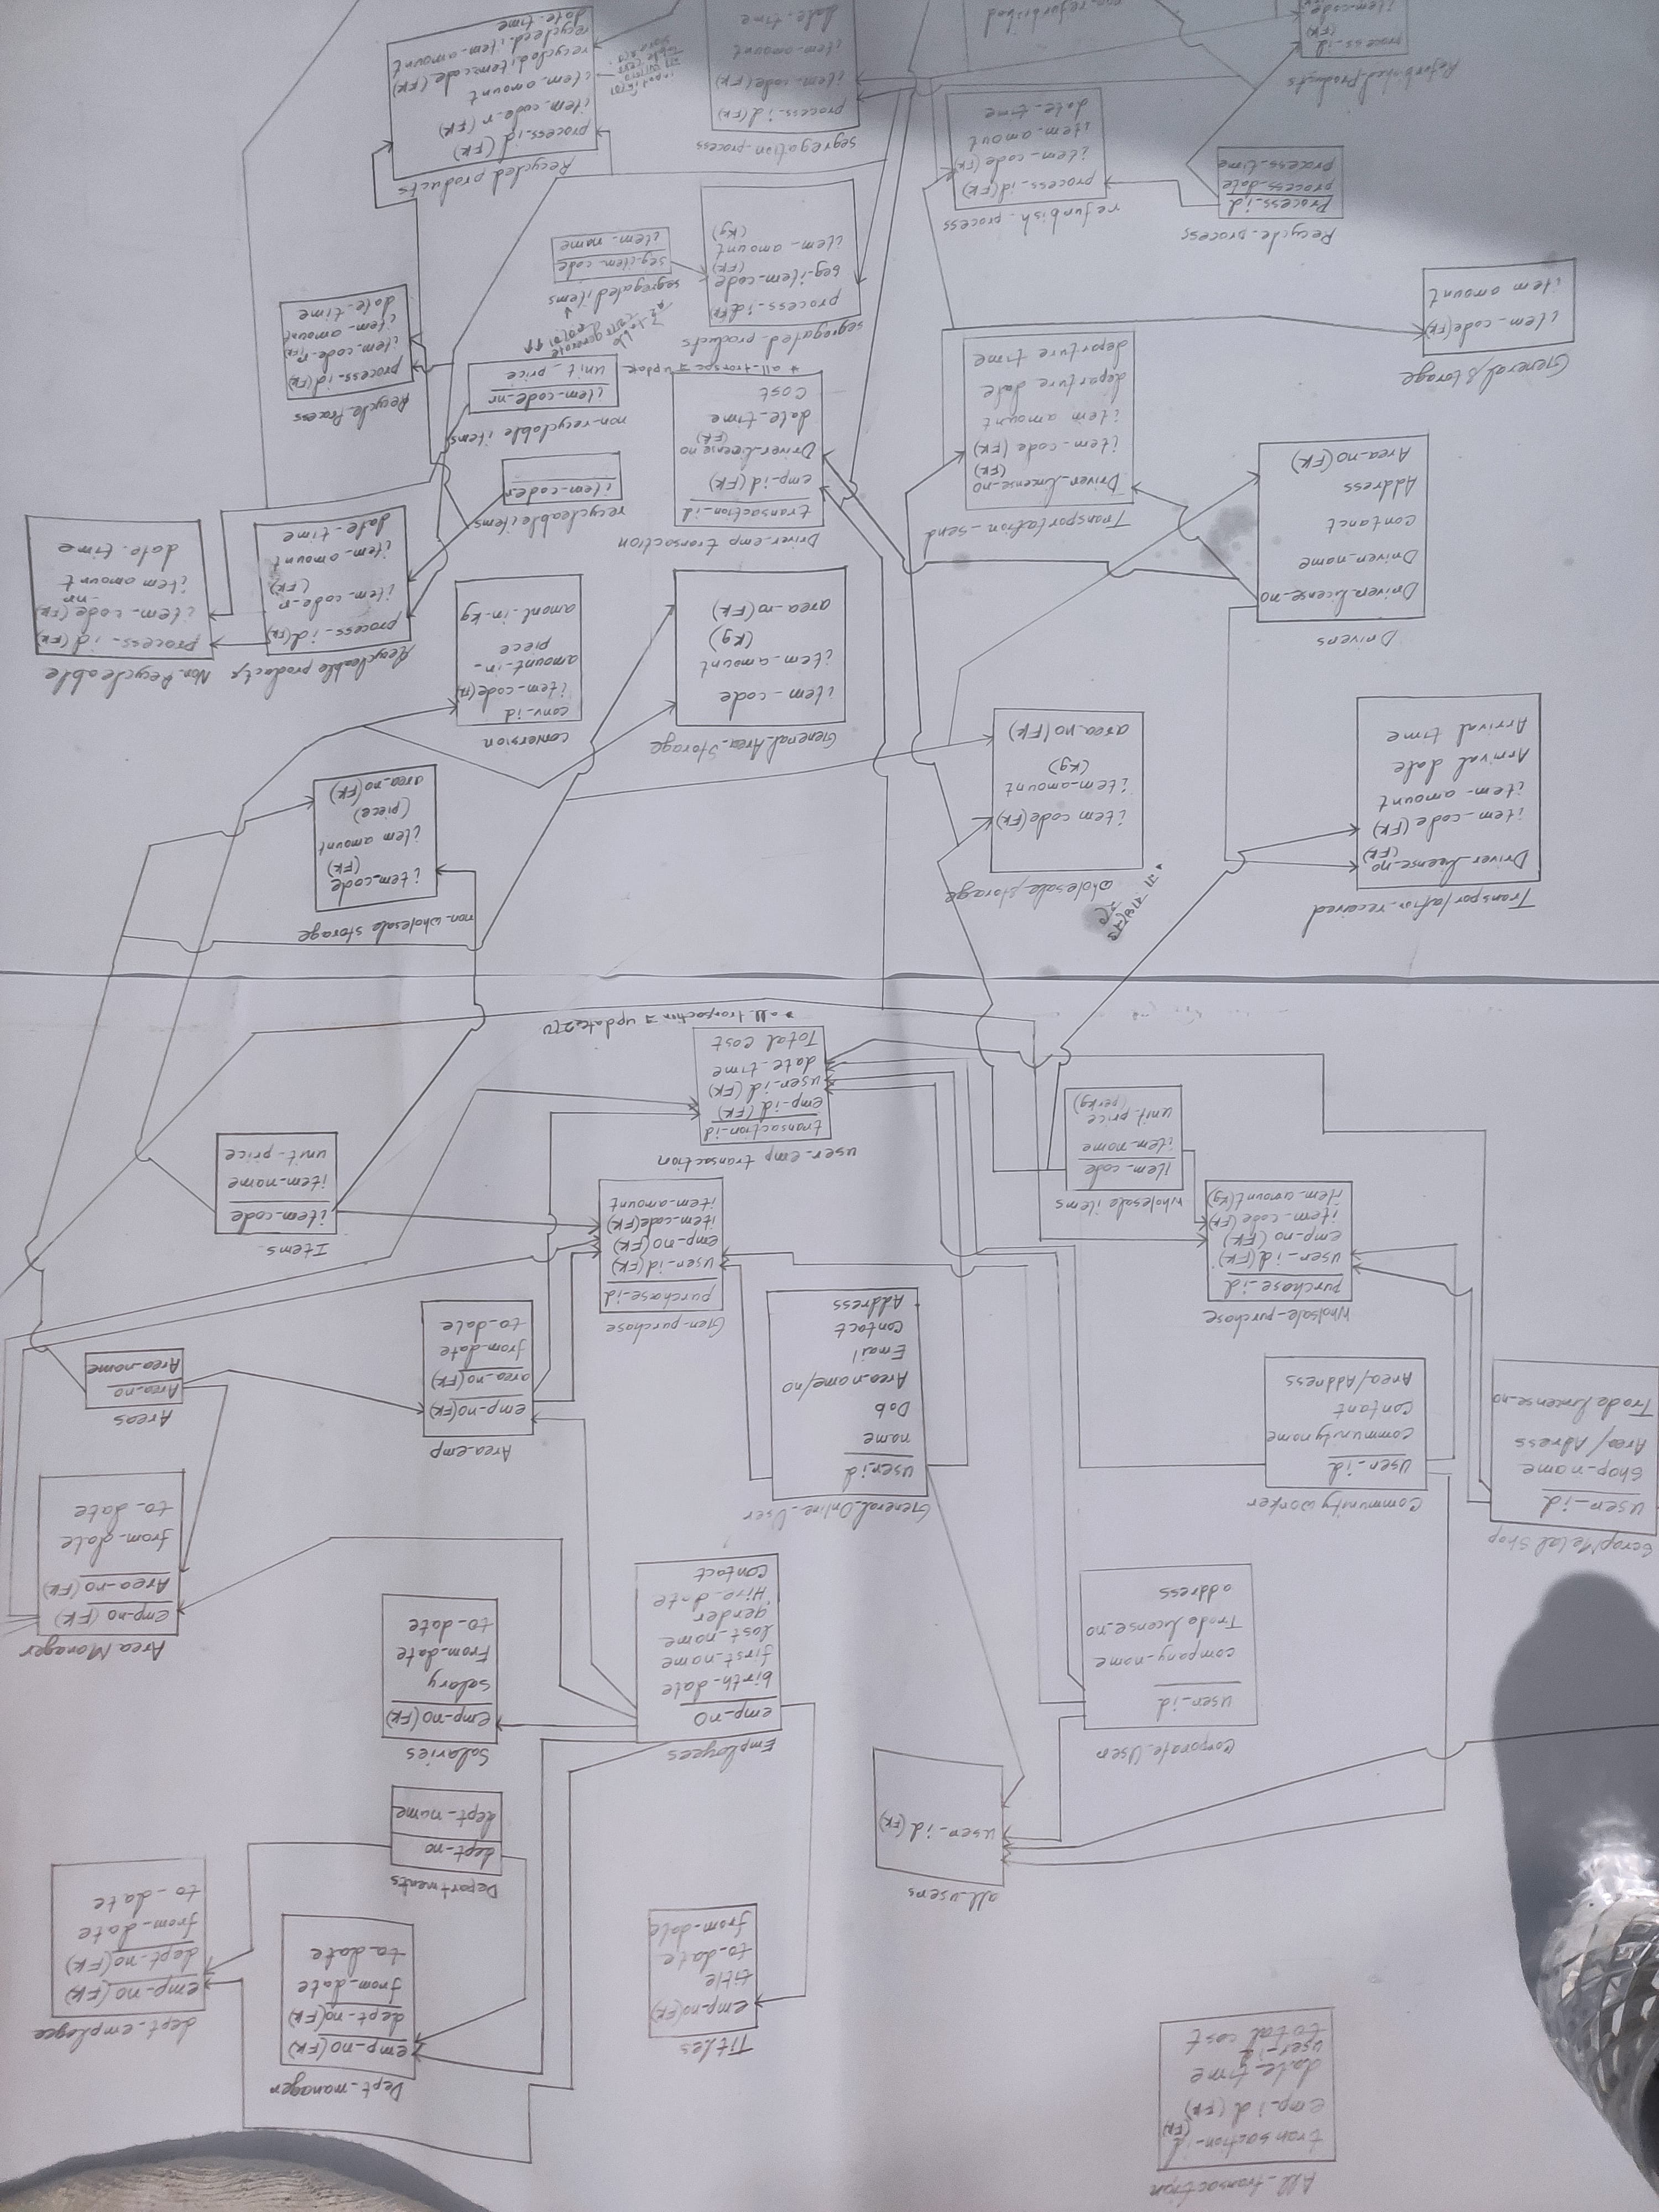 All_transaction
transaction_id
(FK)
emp_id (FK)
date_time
user_id
total cost
Titles
emp_no(FK)
title
to_date
from_date
Dept_manager
emp_no(FK)
dept_no(FK)
from_date
to_date
dept_employee
emp_no (FK)
dept_no(FK)
from_date
to_date
Departments
dept_no
dept_name
all_users
user_id (FK)
Corporate_User
user_id
company_name
Trade license_no
address
Employees
emp_no
birth_date
first_name
last_name
gender
Hire_date
contact
Salaries
emp_no(FK)
salary
From_date
to_date
Area Manager
emp_no (FK)
Area_no(FK)
from_date
to_date
ScrapMetal Shop
user_id
Shop_name
Area/Adress
Trade liscense_no
Community worker
user_id
community name
contant
Area/Address
General_Online_User
user_id
name
Dob
Area_name/no
Email
contact
Address
Area_emp
emp_no(FK)
area_no(FK)
from_date
to_date
Areas
Area_no
Area_name
Wholsale_purchase
purchase_id
user_id(FK)
emp_no (FK)
item_code (FK)
item_amount(Kg)
wholesale items
item_code
item_name
unit_price
(perkg)
Gen_purchase
purchase_id
user_id (FK)
emp_no (FK)
item_code(FK)
item_amount
Items
item_code
item_name
unit_price
user_emp transaction
transaction_id
emp_id (FK)
user_id (FK)
date_time
Total cost
* all_transaction
Transportation_received
Driver_license_no
(FK)
item_code(FK)
item_amount
Arrival date
Arrival time
wholesale storage
item code(FK)
item_amount
(Kg)
area_no(FK)
non_wholesale storage
item_code
(FK)
item amount
(piece)
area_no(FK)
General_Area_Storage
item_code
item_amount
(Kg)
area_no(FK)
conversion
conv_id
item_code(FK)
amount_in_
piece
amont_in_kg
Recycleable products
process_id(FK)
item_code_r
(FK)
item_amount
date_time
Non_Recycleable
process_id (FK)
item_code (FK)
_nr
item amount
date_time
Drivers
Driver_license_no
Driver_name
contanct
Address
Area_no(FK)
Transportation_send
Driver_liscense_no
(FK)
item_code (FK)
item amount
departure date
departure time
Driver_emp transaction
transaction_id
emp_id (FK)
Driver_license_no
(FK)
date_time
cost
recycleable items
item_code_r
non_recyclable items
item_code_nr
unit_price
Recycle_Process
process_id(FK)
item_code_r(FK)
item_amount
date_time
General storage
item_code(FK)
item amount
segregated_products
process_id(FK)
seg_item_code
(FK)
item_amount
(Kg)
segregated items
seg_item_code
item_name
Recycle_process
Process_id
process_date
process_time
refurbish_process
process_id(FK)
item_code(FK)
item_amout
date_time
segregation_process
process_id(FK)
item_code(FK)
item_amount
date_time
Recycled products
process_id (FK)
item_code_r (FK)
item_amount
recycled item_code (FK)
recycleed_item_amount
date_time
Refurbished_Products
process_id
(FK)
item_code
non_refurbished